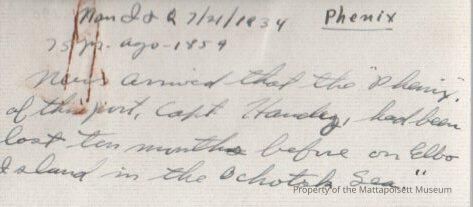 Nan I & Q 7/21/1934 Phenix
75 yr. ago - 1859
News arrived that the "Phenix",
of this port, Capt. Handy, had been
lost ten months before on Elbo
Island in the Ochotsk Sea."
Property of the Mattapoisett Museum